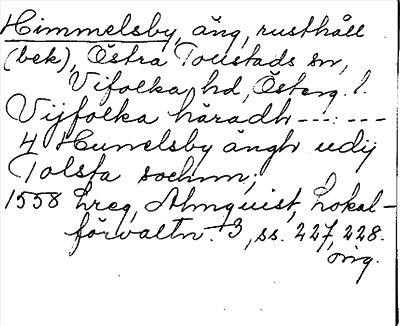 Himmelsby, äng, rusthåll
(bek), Östra Toustads sn,
Vifolka hd, Österg. l.
Vijfolka häradh ---:---
4 Humelsby ängh udij
Tolsta sochnn,
1558 Lreg, Almquist, Lokal-
förvaltn. 3, ss. 227, 228.
orig.